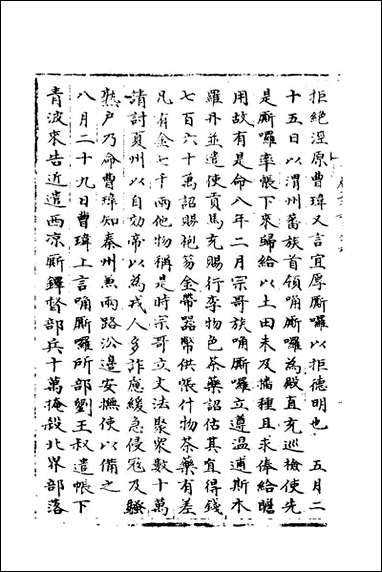 拒絕涇原曹瑋又言宜厚厮囉以拒德明也　五月二
十五日以渭州蕃族首領唃厮囉為殿直充巡檢使先
是厮囉率帳下來歸給以土田未及播種且求俸給贍
用故有是命八年二月宗哥族唃厮囉立遵温逋斯木
羅丹並遣使貢馬充賜行李物色茶藥詔估其宜得錢
七百六十萬詔賜袍笏金帶器幣供帳什物茶藥有差
凡有金七千兩他物稱是時宗哥立文法聚衆數十萬
請討夏州以自効帝以為戎人多詐應緩急侵寇及騷
熟户乃命曹瑋知秦州兼兩路沿邊安撫使以備之
八月二十九日曹瑋上言唃厮囉所部劉王叔遣帳下
青波來告近遣西凉厮鐸督部兵十萬掩殺北界部落